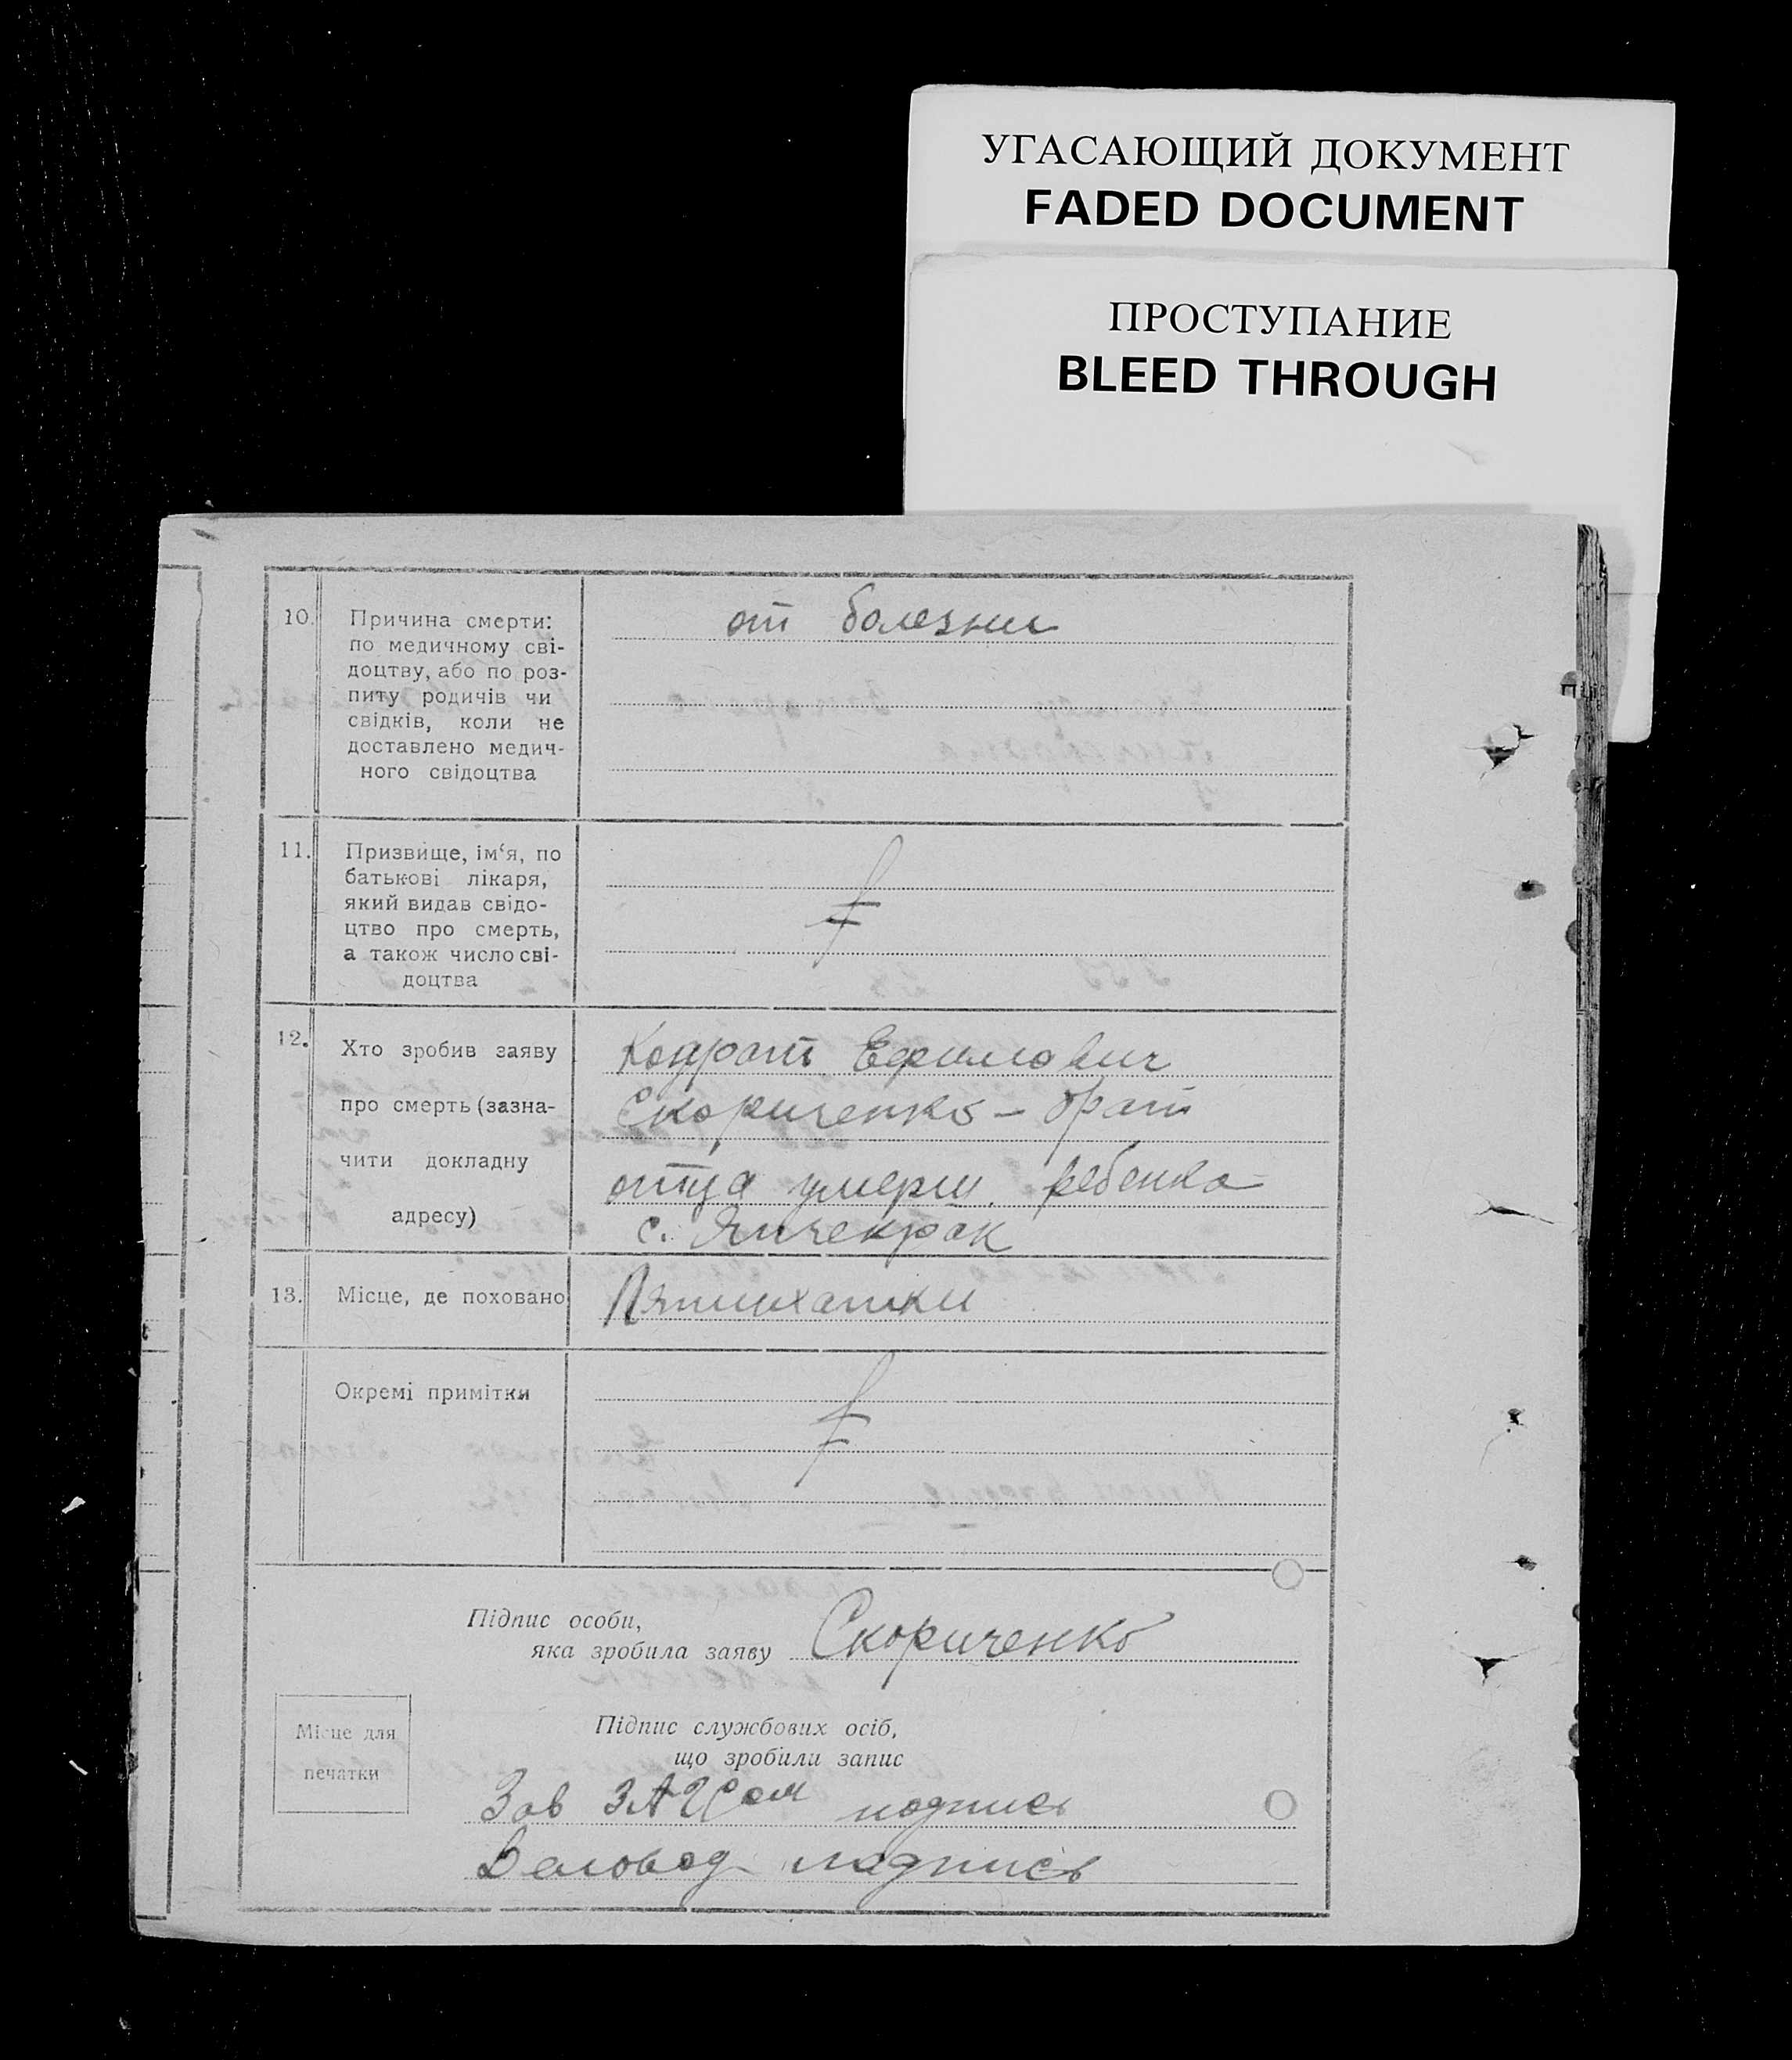 УГАСАЮЩИЙ ДОКУМЕНТ
FADED DOCUMENT
ПРОСТУПАНИЕ
BLEED THROUGH
10. Причина смерти:
по медичному сві-
доцтву, або по роз-
питу родичів чи
свідків, коли не
доставлено медич-
ного свідоцтва
от болезни
11. Призвище, ім‘я, по
батькові лікаря,
який видав свідо-
цтво про смерть,
а також число сві-
доцтва
12. Хто зробив заяву
про смерть (зазна-
чити докладну
адресу)
Кодрат Ефимович
Скориченко – брат
отца умерш. ребенка
с. Янчекрак
13. Місце, де поховано
Пятихатки
Окремі примітки
Підпис особи,
яка зробила заяву Скориченко
Місце для
печатки
Підпис службових осіб,
що зробили запис
Зав ЗАГСом подпись
Деловод подпись